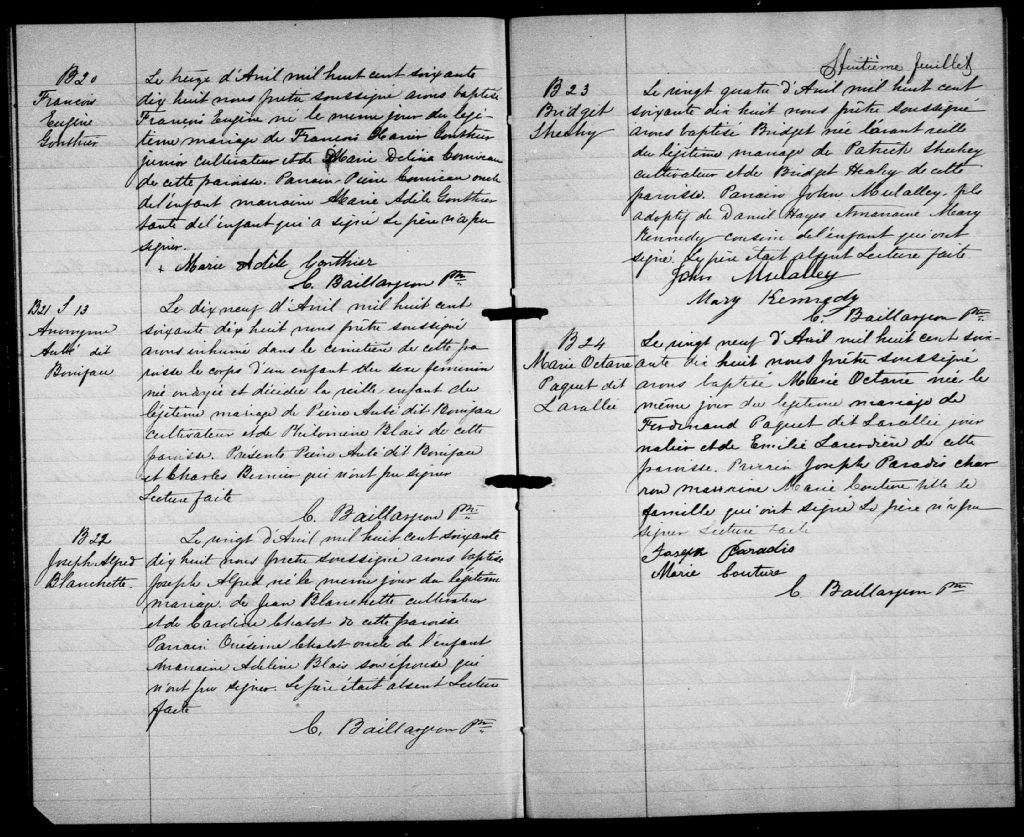 B 20
François
Eugène
Gonthier
Le treize d'Avril mil huit cent soixante
dix huit nous prêtre soussigné avons baptisé
François Eugène né le même jour du légi-
time mariage de François Xavier Gonthier
junior cultivateur et de Marie Delina Corriveau
de cette paroisse. Parrain Pierre Corriveau oncle
de l'enfant marraine Marie Adèle Gonthier
tante de l'enfant qui a signé Le père n'a pu
signer.
+ Marie Adèle Gonthier
C. Baillargeon Ptre
B21 S 13
Anonyme
Aubé dit
Bonifau
Le dix neuf d'Avril mil huit cent
soixante dix huit nous prêtre soussigné
avons inhumé dans le cimetière de cette pa-
roisse le corps d'un enfant du sexe feminin
né ondoyé et décédée la veille enfant du
légitime mariage de Pierre Aubé dit Bonifau
cultivateur et de Philomène Blais de cette
paroisse. Presents Pierre Aubé dit Bonifau
et Charles Bernier qui n'ont pu signer
Lecture faite
C. Baillargeon Ptre
B 22
Joseph Alfred
Blanchette.
Le vingt d'Avril mil huit cent soixante
dix huit nous prêtre soussigné avons baptisé
Joseph Alfred né le même jour du légitime
mariage de Jean Blanchette cultivateur
et de Caroline Chabot de cette paroisse
Parrain Onésime Chabot oncle de l'enfant
marraine Adeline Blais son épouse qui
n'ont pu signer. Le père était absent Lecture
faite
C. Baillargeon Ptre
Huitième feuillet
B 23
Bridget
Sheehy
Le vingt quatre d'Avril mil huit cent
soixante dix huit nous prêtre soussigné
avons baptisé Bridget née l'avant veille
du légitime mariage de Patrick Sheehey
cultivateur et de Bridget Healey de cette
paroisse. Parrain John Mulalley fils
adoptif de Daniel Hayes et marraine Mary
Kennedy cousine de l'enfant qui ont
signé. Le père était absent Lecture faite
John Mulalley
Mary Kennedy
C. Baillargeon Ptre
B 24
Marie Octavie
Paquet dit
Lavallée
Le vingt neuf d'Avril mil huit cent soix-
ante dix huit nous prêtre soussigné
avons baptisé Marie Octavie née le
même jour du légitime mariage de
Ferdinand Paquet dit Lavallée jour
nalier et de Emilie Laverdière de cette
paroisse. Parrain Joseph Paradis char
ron marraine Marie Couture fille de
famille qui ont signé Le père n'a pu
signer Lecture faite
Joseph Paradis
Marie Couture
C. Baillargeon Ptre